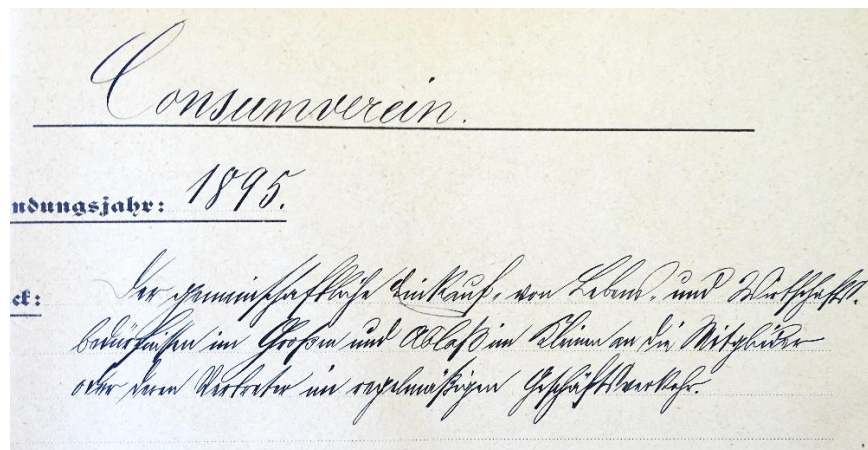 Consumverein.
ndungsjahr: 1895.
ck: Der gemeinschaftliche Einkauf, von Lebens- und Wirtschafts-
bedürfnissen im Großen und Ablaß im Kleinen an die Mitglieder
oder deren Vertreter im regelmäßigen Geschäftsverkehr.